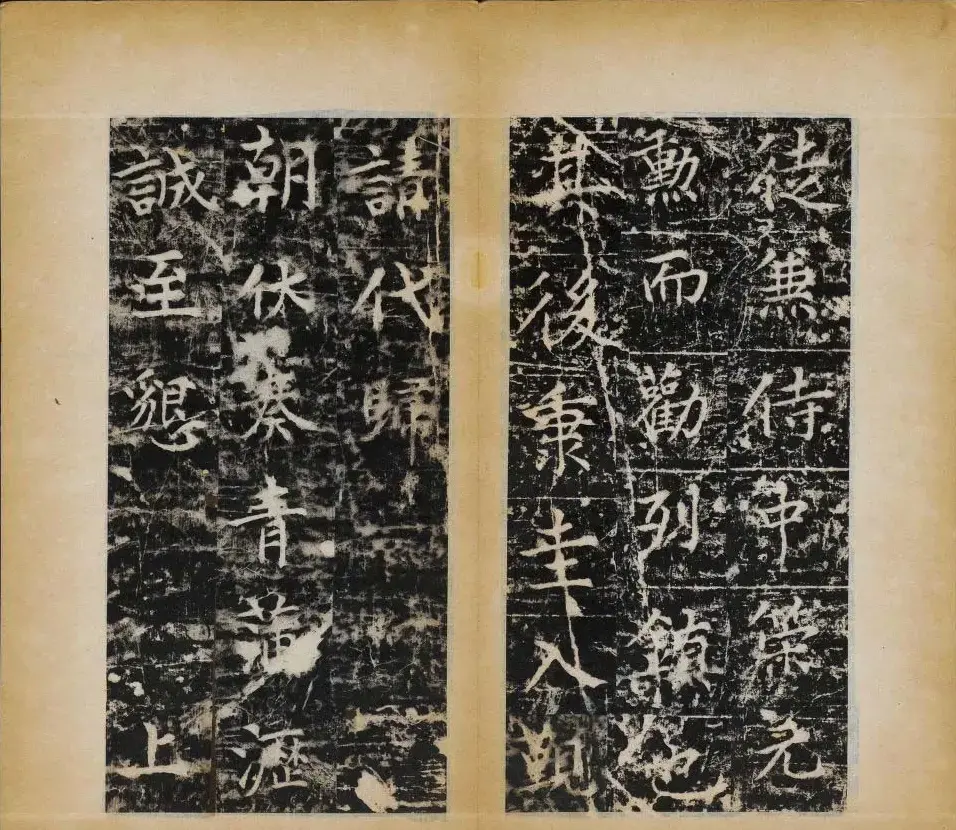 徒兼侍中策元
勳而勸列鎮也
其後秉圭入覲
請代歸
朝伏奏青蒲瀝
誠至懇 上